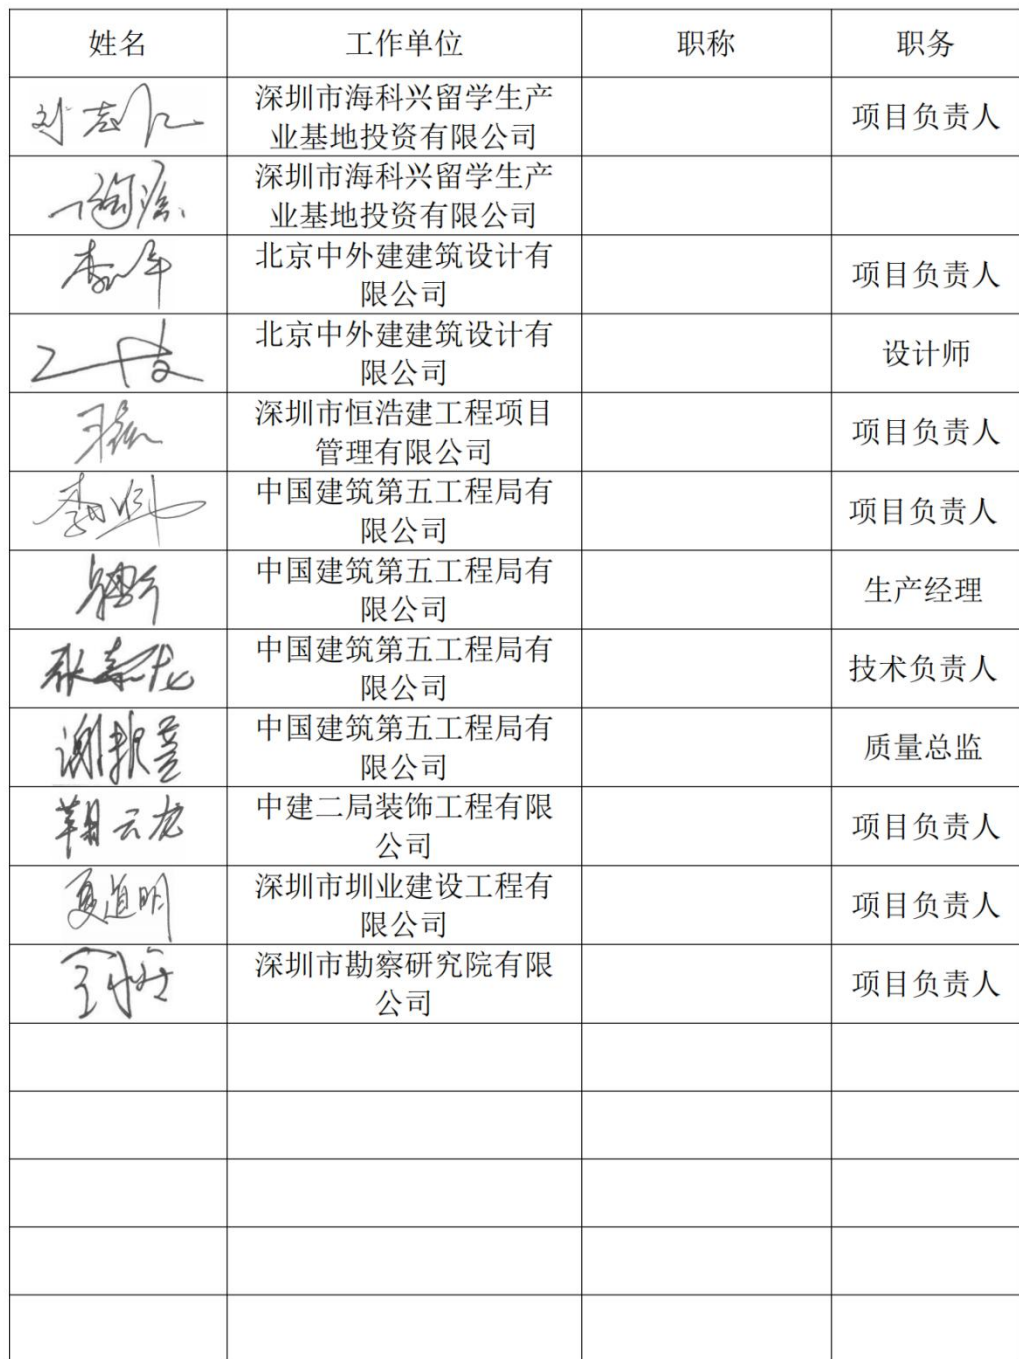 姓名 工作单位 职称 职务
深圳市海科兴留学生产
业基地投资有限公司
项目负责人
深圳市海科兴留学生产
业基地投资有限公司
北京中外建建筑设计有
限公司
项目负责人
北京中外建建筑设计有
限公司
设计师
深圳市恒浩建工程项目
管理有限公司
项目负责人
中国建筑第五工程局有
限公司
项目负责人
中国建筑第五工程局有
限公司
生产经理
中国建筑第五工程局有
限公司
技术负责人
中国建筑第五工程局有
限公司
质量总监
中建二局装饰工程有限
公司
项目负责人
夏道明
深圳市圳业建设工程有
限公司
项目负责人
深圳市勘察研究院有限
公司
项目负责人